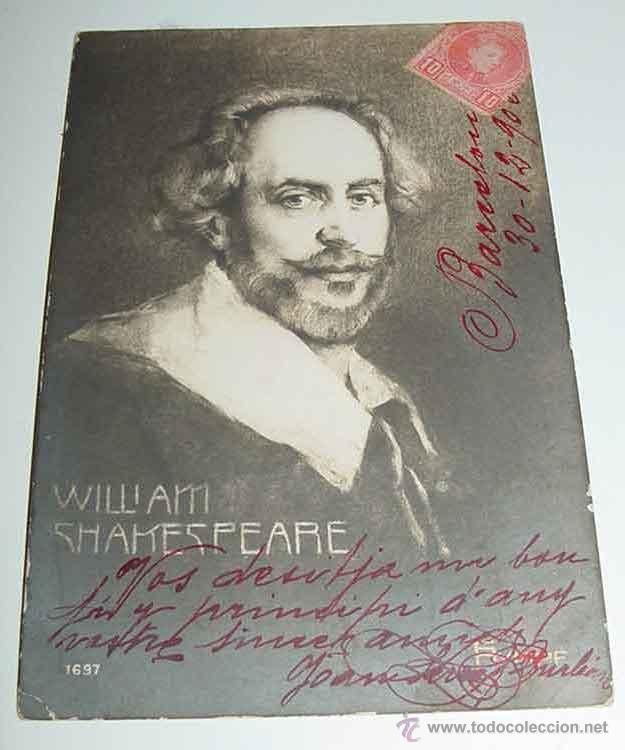 10 10
Barcelona
30-12-90
WILLIAM
SHAKESPEARE
Vos desitja un bon
fi y principi d'any
vostre sincer amich
1697
© www.todocoleccion.net